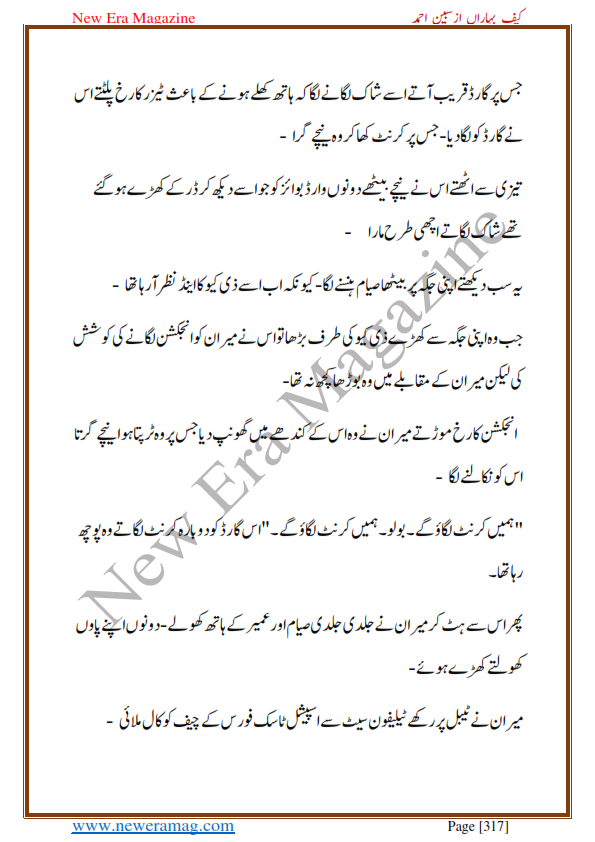 New Era Magazine
کیف بہاراں از سبین احمد
جس پر گارڈ قریب آتے اسے شاک لگانے لگا کہ ہاتھ کھلے ہونے کے باعث ٹیزر کا رخ پلٹتے اس
نے گارڈ کو لگا دیا- جس پر کرنٹ کھا کر وہ نیچے گرا -
تیزی سے اٹھتے اس نے نیچے بیٹھے دونوں وارڈ بوائز کو جو اسے دیکھ کر ڈر کے کھڑے ہو گئے
تھے شاک لگاتے اچھی طرح مارا -
یہ سب دیکھتے اپنی جگہ پر بیٹھا صیام ہنسنے لگا- کیونکہ اب اسے ذی کیو کا اینڈ نظر آ رہا تھا -
جب وہ اپنی جگہ سے کھڑے ذی کیو کی طرف بڑھا تو اس نے میران کو انجکشن لگانے کی کوشش
کی لیکن میران کے مقابلے میں وہ بوڑھا کچھ نہ تھا-
انجکشن کا رخ موڑتے میران نے وہ اس کے کندھے میں گھونپ دیا جس پر وہ تڑپتا ہوا نیچے گرتا
اس کو نکالنے لگا -
"ہمیں کرنٹ لگاؤ گے۔ بولو۔ ہمیں کرنٹ لگاؤ گے۔" اس گارڈ کو دوبارہ کرنٹ لگاتے وہ پوچھ
رہا تھا۔
پھر اس سے ہٹ کر میران نے جلدی جلدی صیام اور عمیر کے ہاتھ کھولے- دونوں اپنے پاوں
کھولتے کھڑے ہوئے-
میران نے ٹیبل پر رکھے ٹیلیفون سیٹ سے اسپیشل ٹاسک فورس کے چیف کو کال ملائی -
New Era Magazine
www.neweramag.com
Page [317]